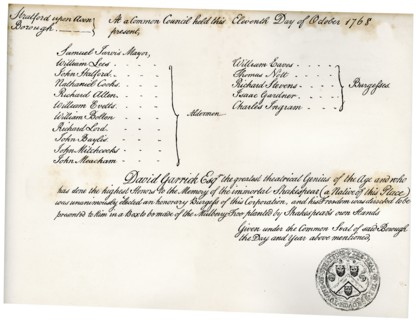 Stratford upon Avon
Borough
At a Common Council held this Eleventh Day of October 1768
present,
Samuel Jarvis Mayor,
William Lees
John Halford
Nathaniel Cooks
Richard Allen
William Evetts
William Bolton
Richard Lord
John Baylis
John Mitchcocks
John Meacham
Aldermen
William Eaves
Thomas Nott
Richard Stevens
Isaac Gardner
Charles Ingram
Burgesses
David Garrick Esqr. the greatest theatrical Genius of the Age and who
has done the highest Honors to the Memory of the immortal Shakespear (a Native of this Place)
was unanimously elected an honorary Burgess of this Corporation, and his Freedom was directed to be
presented to Him in a Box to be made of the Mulberry Tree planted by Shakespears own Hands
Given under the Common Seal of said Borough
the Day and Year above mentioned,